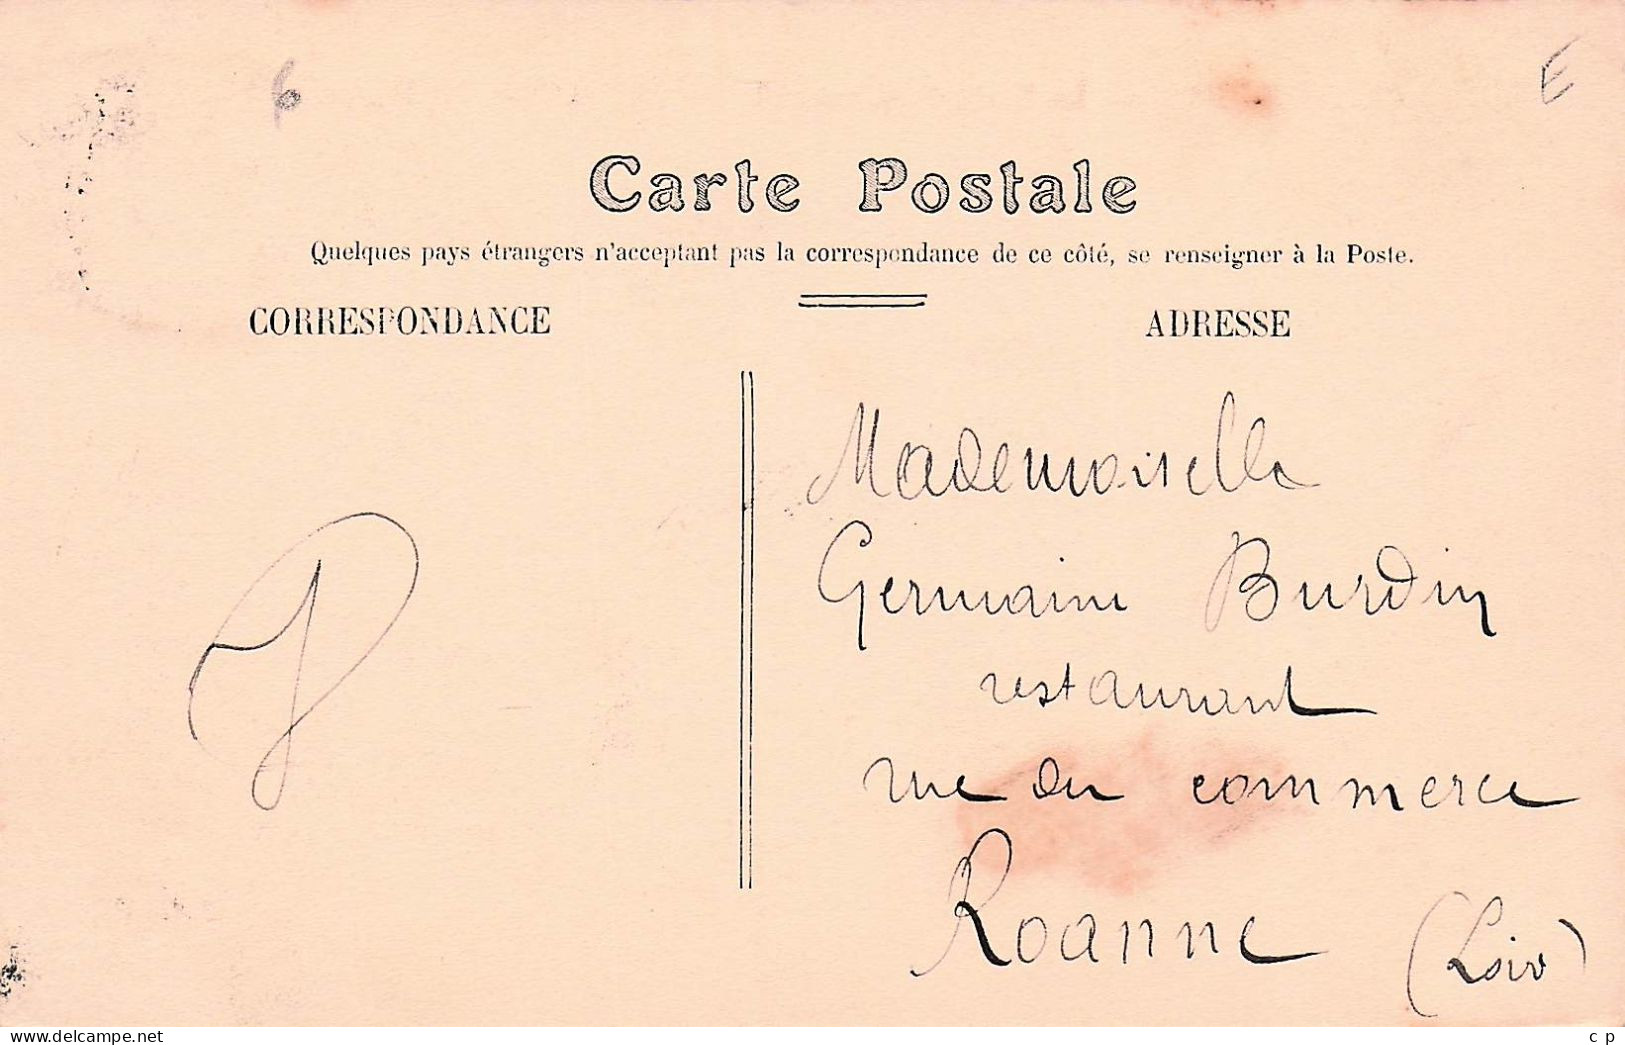 6
E
Carte Postale
Quelques pays étrangers n'acceptant pas la correspondance de ce côté, se renseigner à la Poste.
CORRESPONDANCE
ADRESSE
Mademoiselle
Germaine Burdin
restaurant
rue du commerce
Roanne (Loire)
www.delcampe.net
c p